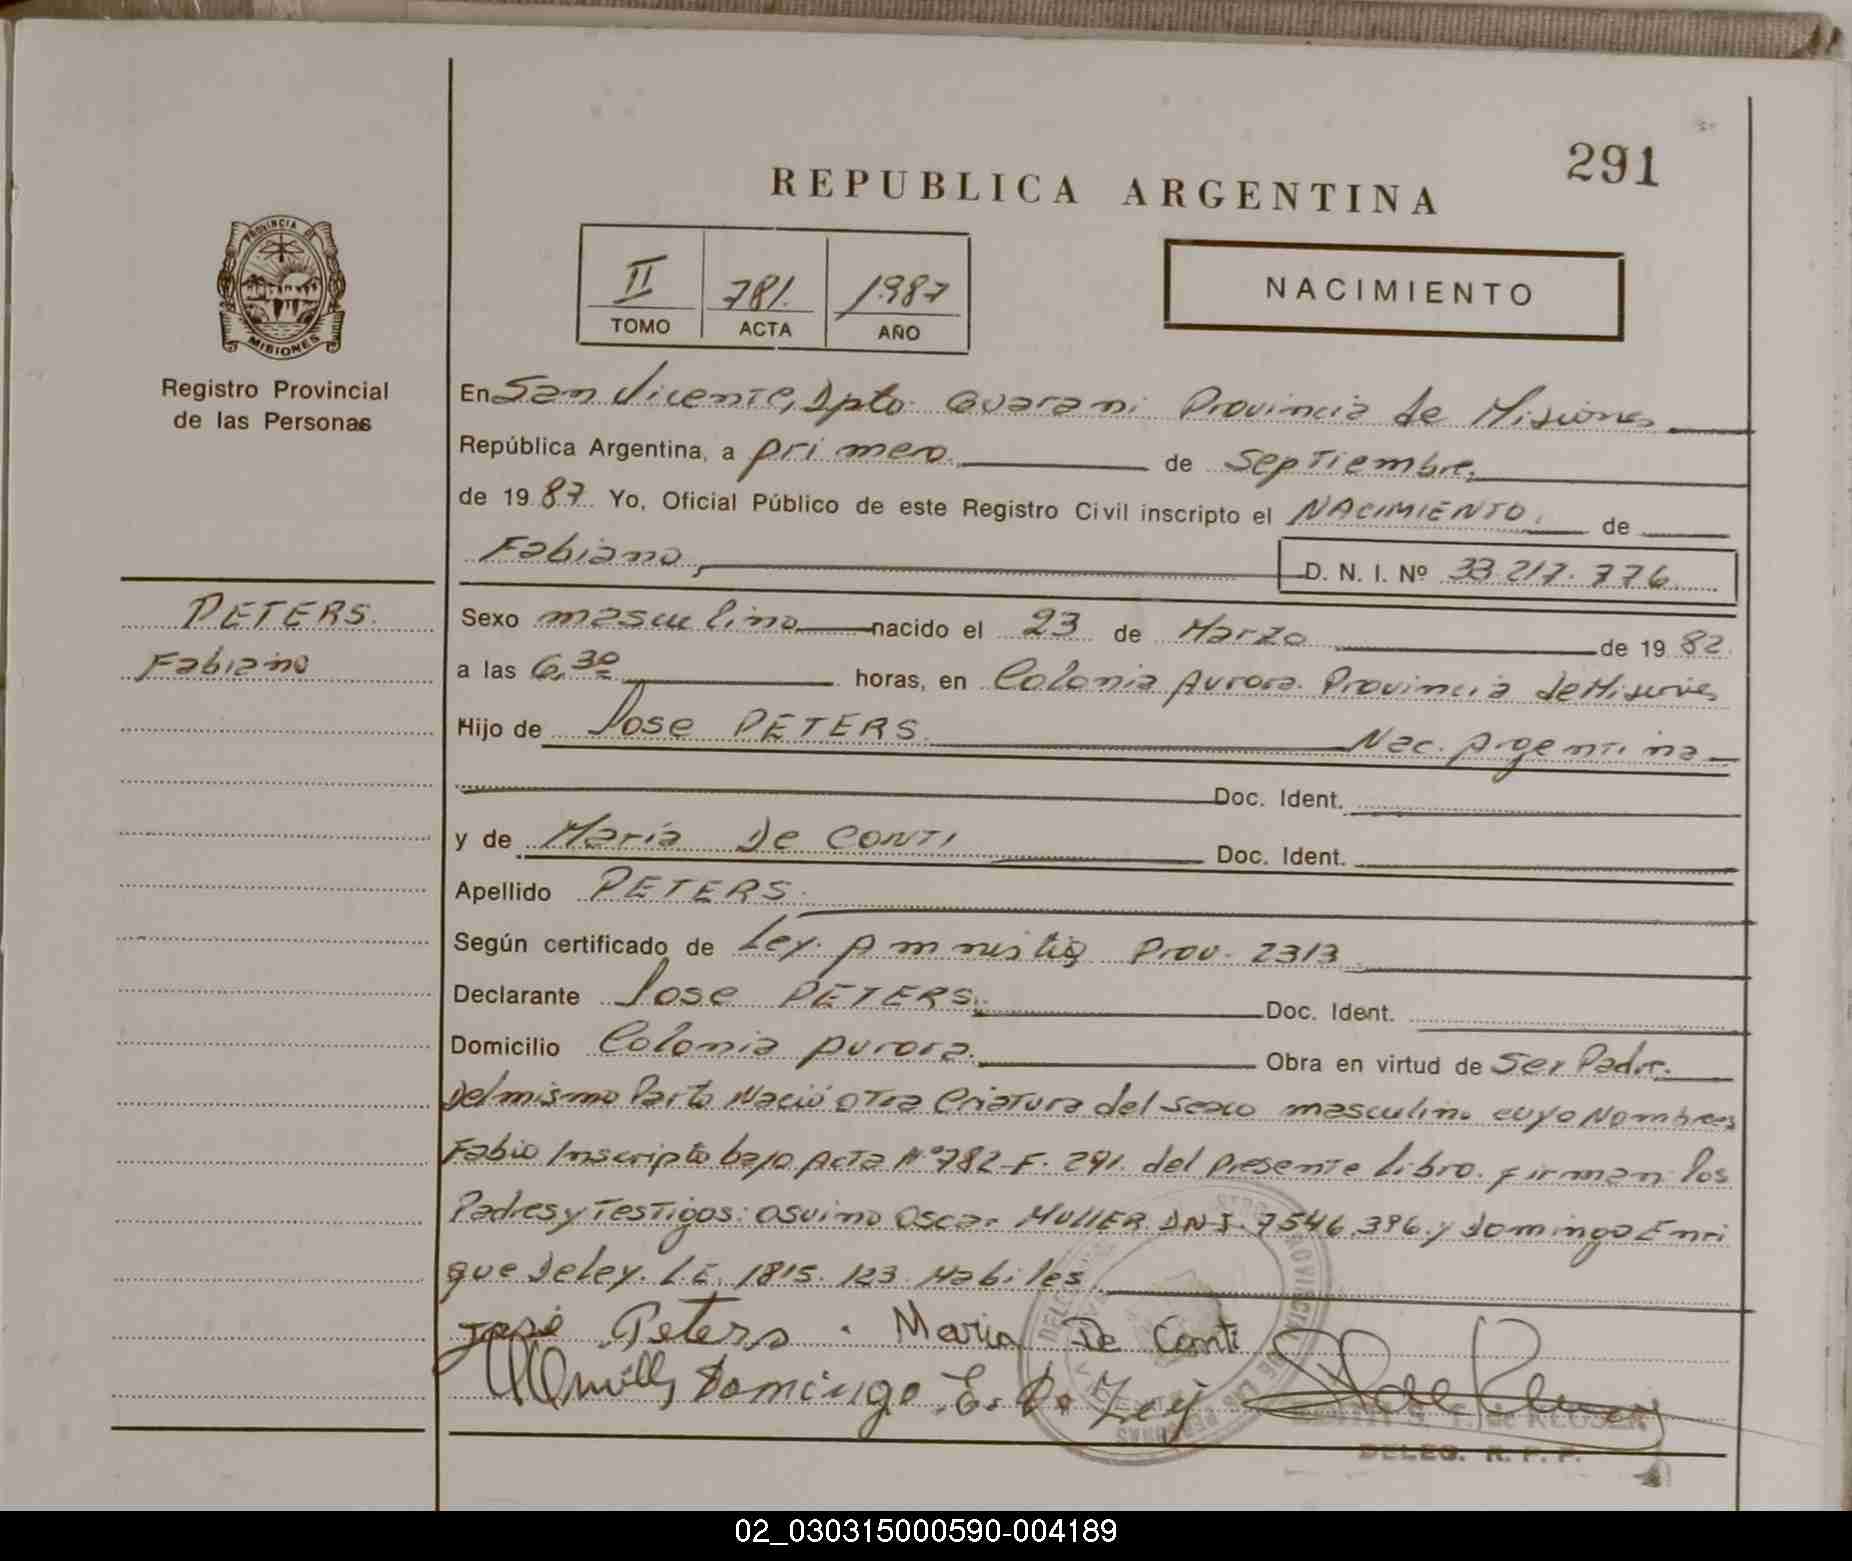 291
REPUBLICA ARGENTINA
PROVINCIA DE
MISIONES
Registro Provincial
de las Personas
II 781. 1987
TOMO ACTA AÑO
NACIMIENTO
En San Vicente, Dpto. Guarani Provincia de Misiones
República Argentina, a primero de Septiembre.
de 1987. Yo, Oficial Público de este Registro Civil inscripto el NACIMIENTO. de
Fabiano, D. N. I. Nº 33.217.776
PETERS.
Fabiano
Sexo masculino nacido el 23 de Marzo de 1982.
a las 6,30 horas, en Colonia Aurora. Provincia de Misiones
Hijo de Jose PETERS. Nac. Argentina
Doc. Ident.
y de María De CONTI Doc. Ident.
Apellido PETERS.
Según certificado de Ley. Amnistia Prov. 2313
Declarante Jose PETERS. Doc. Ident.
Domicilio Colonia Aurora. Obra en virtud de Ser Padre.
Del mismo Parto Nació otra Criatura del sexo masculino cuyo Nombre es
Fabio Inscripto bajo Acta Nº 782-F. 291. del Presente Libro. firman los
Padres y Testigos: Osvino Oscar MULLER D.N.I. 7546.396. y Domingo Enri
que Deley. L.E. 1815.123. Habiles.
José Peters . Maria De Conti
Domingo E. De Ley
DELEG. R. P. P.
02_030315000590-004189